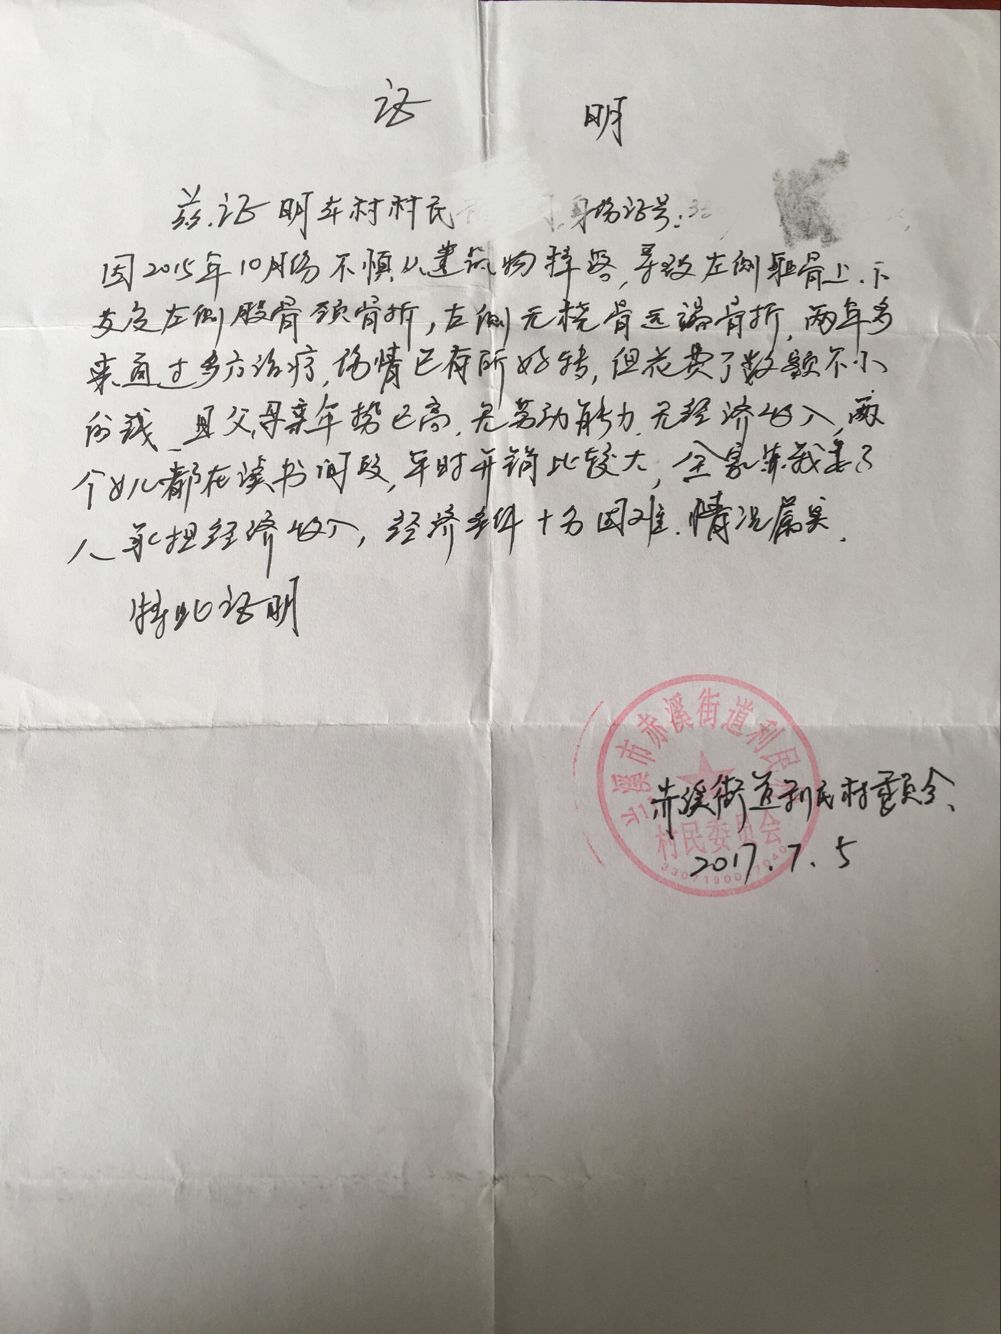 证 明
兹证明本村村民 身份证号:
因2015年10月份不慎从建筑物摔落,导致左侧耻骨上.下
支及左侧股骨颈骨折,左侧尺桡骨远端骨折,两年多
来通过多方治疗,伤情已有所好转,但花费了数额不小
的钱.且父母亲年势已高.无劳动能力.无经济收入,两
个女儿都在读书阶段,平时开销比较大,全家靠我妻子
人承担经济收入,经济条件十分困难.情况属实.
特此证明
兰溪市赤溪街道利民村
村民委员会
赤溪街道利民村委员会
2017.7.5